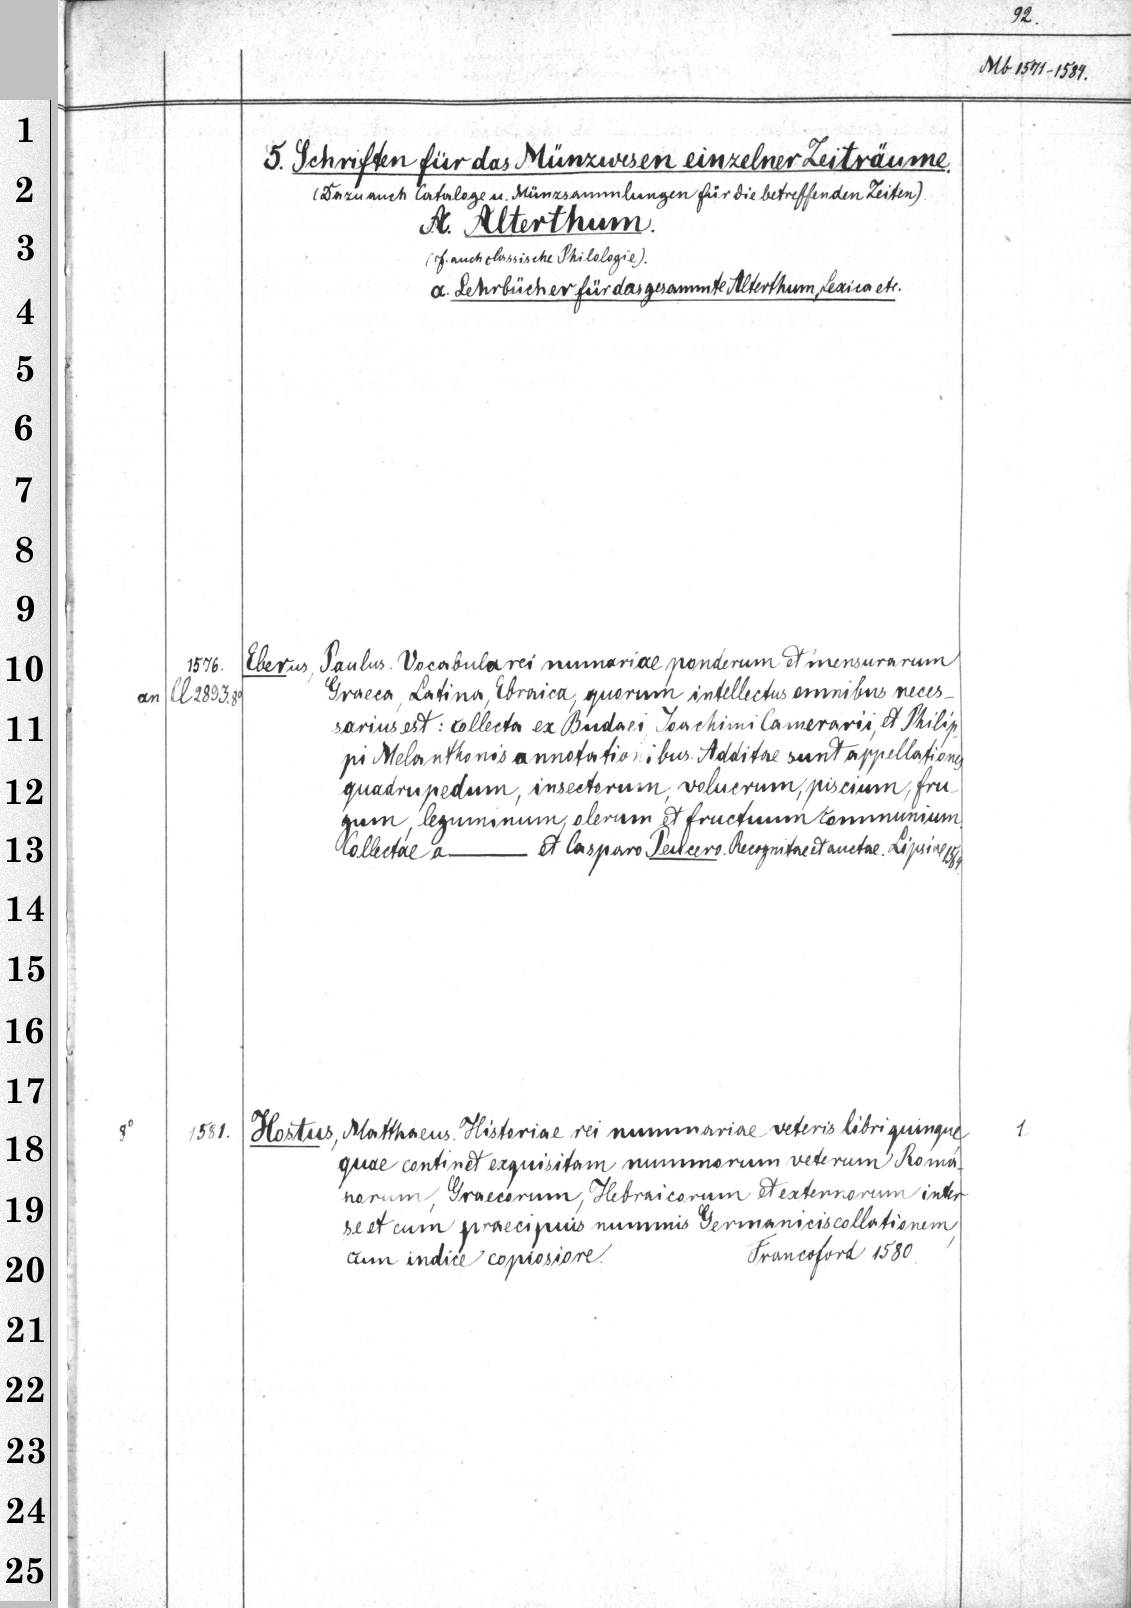 92.
Mb 1571-1584.
5. Schriften für das Münzwesen einzelner Zeiträume.
(Dazu auch Cataloge u. Münzsammlungen für die betreffenden Zeiten).
A. Alterthum.
(cf. auch classische Philologie).
a. Lehrbücher für das gesammte Alterthum, Lexica etc.
1576. Eberus, Paulus. Vocabula rei numariae ponderum et mensurarum
an Cl 2893.8° Graeca, Latina, Ebraica, quorum intellectus omnibus neces-
sarius est: collecta ex Budaei, Joachimi Camerarii, et Philip-
pi Melanthonis annotationibus. Additae sunt appellationes
quadrupedum, insectorum, volucrum, piscium, fru
gum, leguminum, olerum et fructuum communium.
Collectae a ——— et Casparo Peucero. Recognitae et auctae. Lipsiae
8° 1581. Hostus, Matthaeus. Historiae rei nummariae veteris libri quinque 1
quae continet exquisitam nummorum veterum Roma-
norum, Graecorum, Hebraicorum et externorum inter
se et cum praecipuis nummis Germanicis collationem,
cum indice copiosiore. Francoford 1580.
1
2
3
4
5
6
7
8
9
10
11
12
13
14
15
16
17
18
19
20
21
22
23
24
25